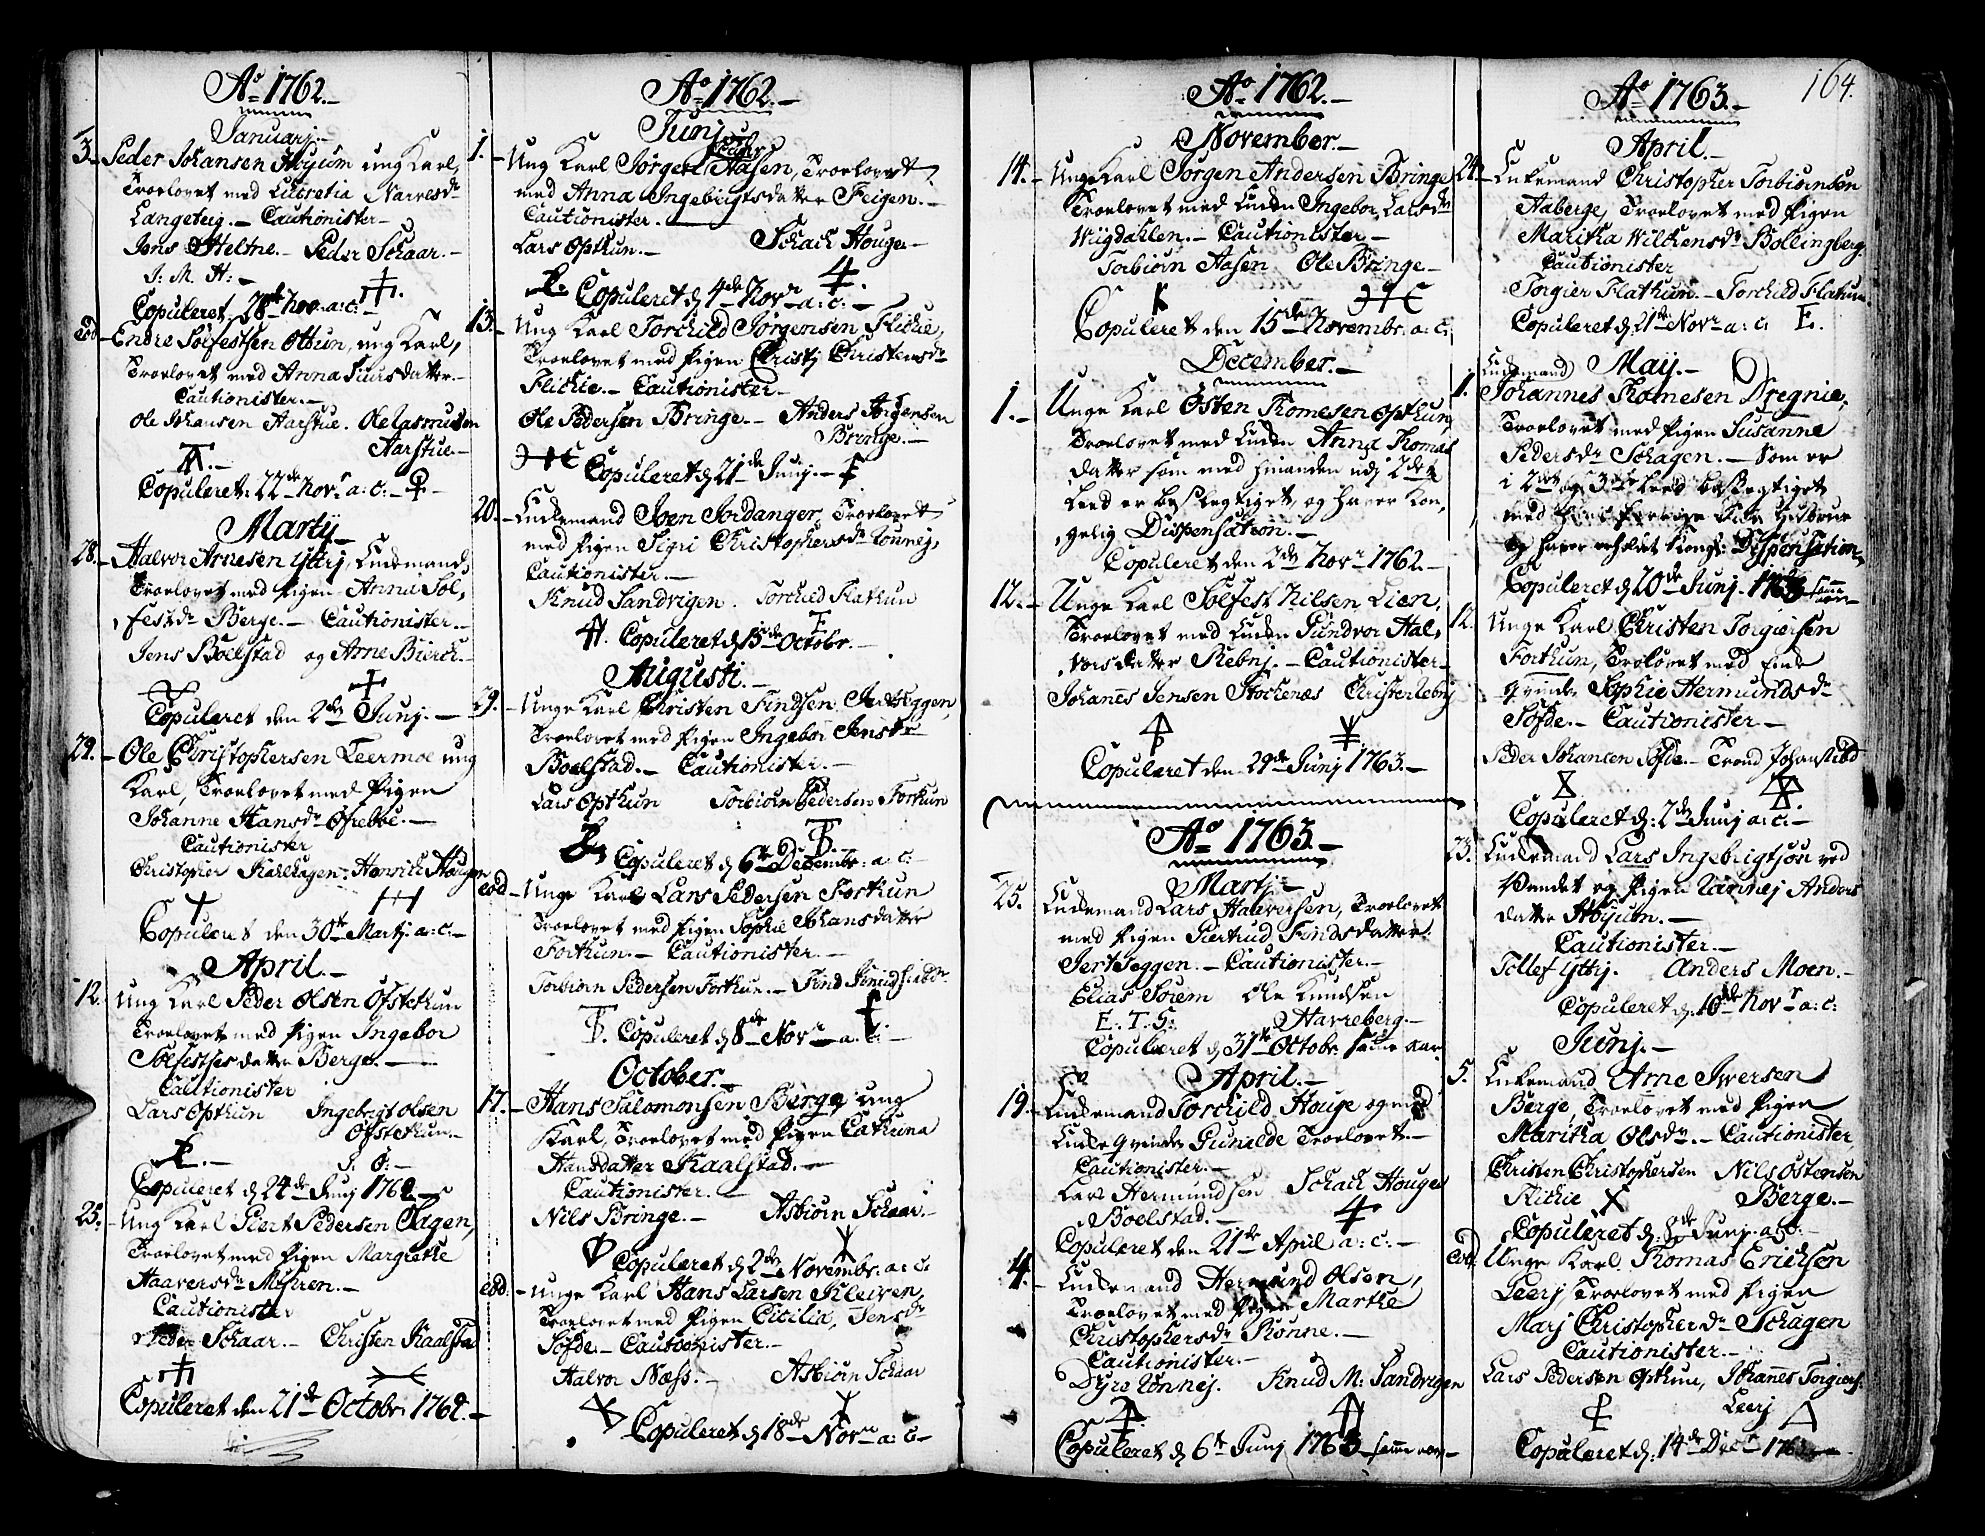 Ao 1762.
Januarj.
3. Peder Johansen Høyum ung Karl,
Troelovet med Lucretia Narvesdr
Langeteig. Cautionister
Jens Helme. Peder Schaar.
J. M. H:
Copuleret: 28de Nov. a: c:
eod Endre Solfestsen Ottun, ung Karl,
Troelovet med Anna Siursdatter
Cautionister.
Ole Johansen Aarstue. Ole Rasmussen
Aarstue.
Copuleret: 22de Novr a: c:
Martij
28. Halvor Arnesen Ytrj, Enkemand
Troelovet med Pigen Anna Sol,
festdr Berge. Cautionister.
Jens Boelstad og Arne Bierch.
Copuleret den 2den Junj.
29. Ole Christophersen Leermoe ung
Karl, Troelovet med Pigen
Johanne Hansdr Øfrebøe.
Cautionister
Christopher Kalhagen. Henrich Hougen
Copuleret den 30te Martj. a: c:
April.
12. Ung Karl Peder Olsen Ofstethun
Troelovet med Pigen Ingebor
Solfestsdatter Berge.
Cautionister
Lars Opthun Ingebrigt Olsen
Ofstethun.
J. O:
Copuleret d 24de Junj 1762
25. Ung Karl Siert Pedersen Hagen,
Troelovet med Pigen Margrethe
Haaversdr Myhren.
Cautionister
Peder Schaar. Christen Kaalstad
Copuleret den 21de Octobr 1762.
Ao 1762.
Junj
1. Ung Karl Jørgen Aasen, Troelovet
med Anna Ingebrigtsdatter Feigen.
Cautionister.
Lars Opthun. Schach Houge
Copuleret d 4de Novr a: c:
13. Ung Karl Torchild Jørgensen Flichie,
Troelovet med Pigen Christj Christensdr
Flichie. Cautionister
Ole Pedersen Bringe. Anders Jørgensen
Bringe.
Copuleret d 21de Junj.
20. Enkemand Iven Jordanger, Troelovet
med Pigen Sigri Christophersdr Rønnej,
Cautionister.
Knud Sandvigen. Torchild Flathun
Copuleret d 13de Octobr.
Augusti.
29. Unge Karl Christen Findsen Jertseggen,
Troelovet med Pigen Ingebor Jensdr
Boelstad. Cautionister.
Lars Opthun Torbiørn Pedersen Forthun
Copuleret d 6te Decembr. a: c:
eod Unge Karl Lars Pedersen Forthun
Troelovet med Pigen Sophie Johansdatter
Forthun. Cautionister.
Torbiørn Pedersen Forthun.
Copuleret d 8de Novr a. c:
October.
17. Hans Salomonsen Berge ung
Karl, Troelovet med Pigen Cathrina
Hansdatter Kaalstad.
Cautionister.
Nils Bringe. Asbiørn Schaar.
Copuleret d 2den Novembr. a: c:
eod: Unge Karl Hans Larsen Kleiven,
Troelovet med Pigen Cicilia, Jensdr
Søfde. Cautionister.
Halvor Næss. Asbiørn Schaar
Copuleret d 18de Novr a: c
Ao 1762.
November.
14. Unge Karl Jørgen Andersen Bringe
Troelovet med Enken Ingebor Larsdr
Wiigdahlen. Cautionister
Torbiørn Aasen Ole Bringe
Copuleret den 15de Novembr. a: c:
December.
1. Unge Karl Østen Thomesen Opthun
Troelovet med Enken Anna Thomas
datter som med hinanden udj 2det
Leed er beslegtiget, og haver Kon,
gelig Dispensation.
Copuleret den 2den Novr 1762.
12. Unge Karl Solfest Nilsen Lien,
Troelovet med Enken Gundvor Hal,
vorsdatter Rebnj. Cautionister
Johanes Jensen Stochenæs Christen Rebnj
Copuleret den 29de Junj 1763.
Ao 1763.
Martj
25. Enkemand Lars Haaversen, Troelovet
med Pigen Giertrud Findsdatter
Jertseggen. Cautionister.
Elias Sørem Ole Knudsen
E. T. S: Havreberg.
Copuleret d 31te Octobr. samme aar
April.
19. Enkemand Torchild Houge og med
Enke Qvinde Gunilde Troelovet.
Cautionister.
Lars Hermundsen Schach Houge
Boelstad.
Copuleret den 21de April a: c:
4. Enkemand Hermund Olsen,
Troelovet med Pigen Marthe
Christophersdr Rønne.
Cautionister.
Dyre Rønnej. Knud M: Sandvigen
Copuleret d 6te Junj 1763 samme aar
164.
Ao 1763.
April.
24. Enkemand Christopher Torbiørnsen
Aaberge, Troelovet med Pigen
Maritha Wilchensdr Bollingberg
Cautionister
Torgier Flathun. Torchild Flathun
Copuleret d 21de Novr a: c:
Enkemand May.
1. Johannes Thomesen Dregnie,
Troelovet med Pigen Susanne
Pedersdr Schagen. Som er
i 2det og 3die Leed beslegtiget
med hans forrige Hustrue
og haver erholdet Kongl: Dispensation
Copuleret d 20de Junj. 1763 samme aar
12. Unge Karl Christen Torgiersen
Forthun, Troelovet med Enke
Qvinde Sophie Hermundsdr
Søfde. Cautionister
Peder Johansen Søfde. Trond
Copuleret d: 2den Junj a: c:
23. Enkemand Lars Ingebrigtsøn ved
Vandet og Pigen Rannej Anders
datter Høyum.
Cautionister.
Tollef Ytrj. Anders Moen.
Copuleret d. 10de Novr a: c:
Junj.
5. Enkemand Arne Iversen
Berge, Troelovet med Pigen
Maritha Olsdr. Cautionister
Christen Christophersen Nils Østensen
Flichie Berge.
Copuleret d: 8de Junj. a. c:
eod. Unge Karl. Thomas Erichsen
Leerj, Troelovet med Pigen
Marj Christopherdr Schagen
Cautionister.
Lars Pedersen Opthun, Johanes Torgiers.
Leerj
Copuleret d: 14de Decr 1763